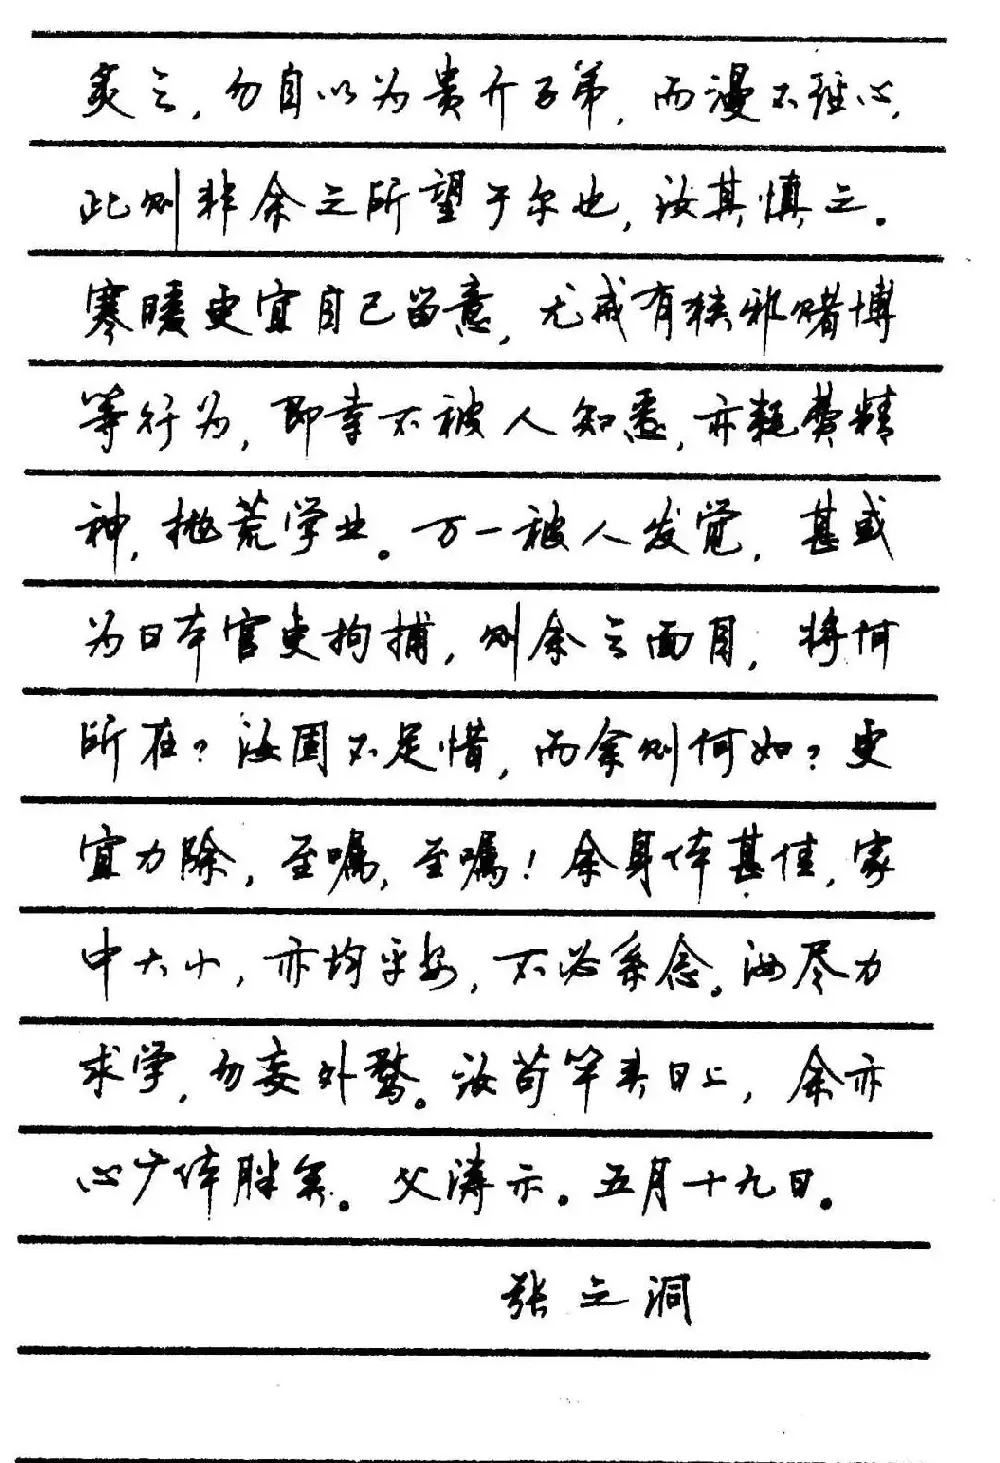 炙之，勿自以为贵介子弟，而漫不经心，
此则非余之所望于尔也，汝其慎之。
寒暖更宜自己留意，尤戒有狭邪赌博
等行为，即幸不被人知悉，亦耗费精
神，抛荒学业。万一被人发觉，甚或
为日本官吏拘捕，则余之面目，将何
所在？汝固不足惜，而余则何如？更
宜力除，至嘱，至嘱！余身体甚佳，家
中大小，亦均平安，不必系念。汝尽力
求学，勿妄外骛。汝苟竿头日上，余亦
心广体胖矣。父涛示。五月十九日。
张之洞